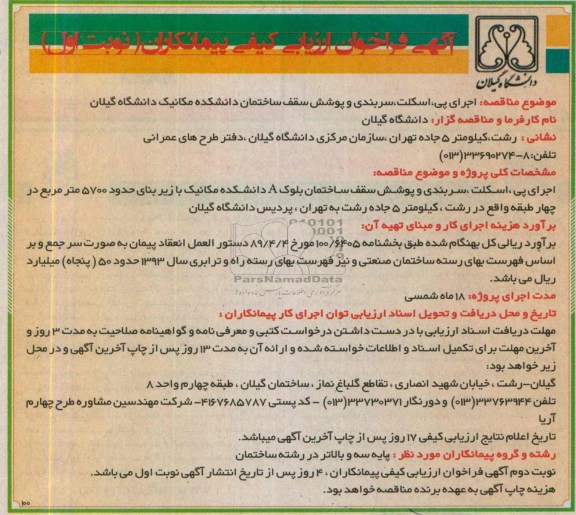 آگهی فراخوان ارزیابی کیفی پیمانکاران (نوبت اول)
دانشگاه گیلان
موضوع مناقصه: اجرای پی،اسکلت،سربندی و پوشش سقف ساختمان دانشکده مکانیک دانشگاه گیلان
نام کارفرما و مناقصه گزار: دانشگاه گیلان
نشانی : رشت،کیلومتر ۵ جاده تهران ،سازمان مرکزی دانشگاه گیلان ،دفتر طرح های عمرانی
تلفن:۸-۳۳۶۹۰۲۷۴(۰۱۳)
مشخصات کلی پروژه و موضوع مناقصه:
اجرای پی ،اسکلت ،سربندی و پوشش سقف ساختمان بلوک A دانشکده مکانیک با زیر بنای حدود ۵۷۰۰ متر مربع در
چهار طبقه واقع در رشت ، کیلومتر ۵ جاده رشت به تهران ، پردیس دانشگاه گیلان
برآورد هزینه اجرای کار و مبنای تهیه آن:
برآورد ریالی کل بهنگام شده طبق بخشنامه ۱۰۰/۶۴۰۵ مورخ ۸۹/۴/۴ دستور العمل انعقاد پیمان به صورت سر جمع و بر
اساس فهرست بهای رسته ساختمان صنعتی و نیز فهرست بهای رسته راه و ترابری سال ۱۳۹۳ حدود ۵۰ ( پنجاه) میلیارد
ریال می باشد.
ParsNamadData
مدت اجرای پروژه: ۱۸ ماه شمسی
تاریخ و محل دریافت و تحویل اسناد ارزیابی توان اجرای کار پیمانکاران :
مهلت دریافت اسناد ارزیابی با در دست داشتن درخواست کتبی و معرفی نامه و گواهینامه صلاحیت به مدت ۳ روز و
آخرین مهلت برای تکمیل اسناد و اطلاعات خواسته شده و ارائه آن به مدت ۱۳ روز پس از چاپ آخرین آگهی و در محل
زیر خواهد بود:
گیلان-رشت ، خیابان شهید انصاری ، تقاطع گلباغ نماز ، ساختمان گیلان ، طبقه چهارم واحد ۸
تلفن ۳۳۷۶۳۹۴۴(۰۱۳) و دورنگار ۳۳۷۳۰۳۷۱(۰۱۳) - کد پستی ۴۱۶۷۶۸۵۷۸۷- شرکت مهندسین مشاوره طرح چهارم
آریا
تاریخ اعلام نتایج ارزیابی کیفی ۱۷ روز پس از چاپ آخرین آگهی میباشد.
رشته و گروه پیمانکاران مورد نظر : پایه سه و بالاتر در رشته ساختمان
نوبت دوم آگهی فراخوان ارزیابی کیفی پیمانکاران ، ۴ روز پس از تاریخ انتشار آگهی نوبت اول می باشد.
هزینه چاپ آگهی به عهده برنده مناقصه خواهد بود.
۱۰۰